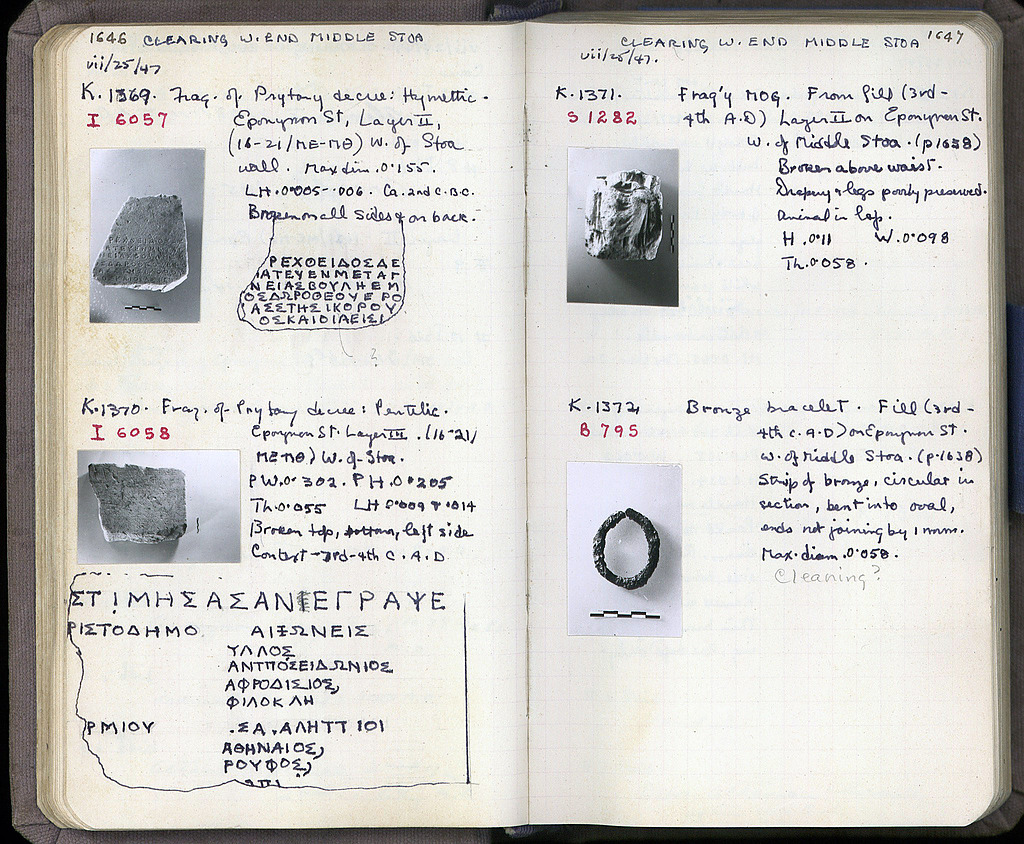 1646 CLEARING W. END MIDDLE STOA
vii/25/47
K.1369. Frag. of Prytany decree: Hymettic.
I 6057
Eponymon St, Layer II,
(16-21/ΜΕ-ΜΘ) W. of Stoa
wall. Max dim. 0.155.
LH. 0.005-.006. Ca. 2nd c. B.C.
Broken on all sides & on back.
ΡΕΧΘΕΙΔΟΣΔΕ
ΙΑΤΕΥΕΝΜΕΤΑΓ
ΝΕΙΑΣΒΟΥΛΗΕΜ
ΟΣΔΩΡΟΘΕΟΥΕΡΟ
ΑΣΣΤΗΣΙΚΟΡΟΥ
ΟΣΚΑΙΟΙΑΕΙΣΙ
?
K.1370. Frag. of Prytany decree: Pentelic.
I 6058
Eponymon St. Layer III. (16-21/
ΜΕ-ΜΘ) W. of Stoa.
P.W. 0.302. P.H. 0.205
Th. 0.055 LH 0.009 & .014
Broken top, bottom, left side
Context 3rd-4th C. A.D
ΣΤΙΜΗΣΑΣΑΝΕΓΡΑΨΕ
ΡΙΣΤΟΔΗΜΟ ΑΙΞΩΝΕΙΣ
ΥΛΛΟΣ
ΑΝΤΠΟΣΕΙΔΩΝΙΟΣ
ΑΦΡΟΔΙΣΙΟΣ
ΦΙΛΟΚΛΗ
ΡΜΙΟΥ .ΣΑ.ΑΛΗΤΤΙΟΙ
ΑΘΗΝΑΙΟΣ
ΡΟΥΦΟΣ
CLEARING W. END MIDDLE STOA 1647
vii/25/47.
K.1371. Frag'y MOG. From fill (3rd-
S 1282
4th A.D) Layer II on Eponymon St.
W. of Middle Stoa. (p1638)
Broken above waist.
Drapery & legs poorly preserved.
Animal in lap.
H .011 W. 0.098
Th. 0.058.
K.1372, Bronze bracelet. Fill (3rd-
B 795
4th c. A.D) on Eponymon St.
W. of Middle Stoa. (p.1638)
Strip of bronze, circular in
section, bent into oval,
ends not joining by 1 mm.
Max. diam. 0.058.
Cleaning?